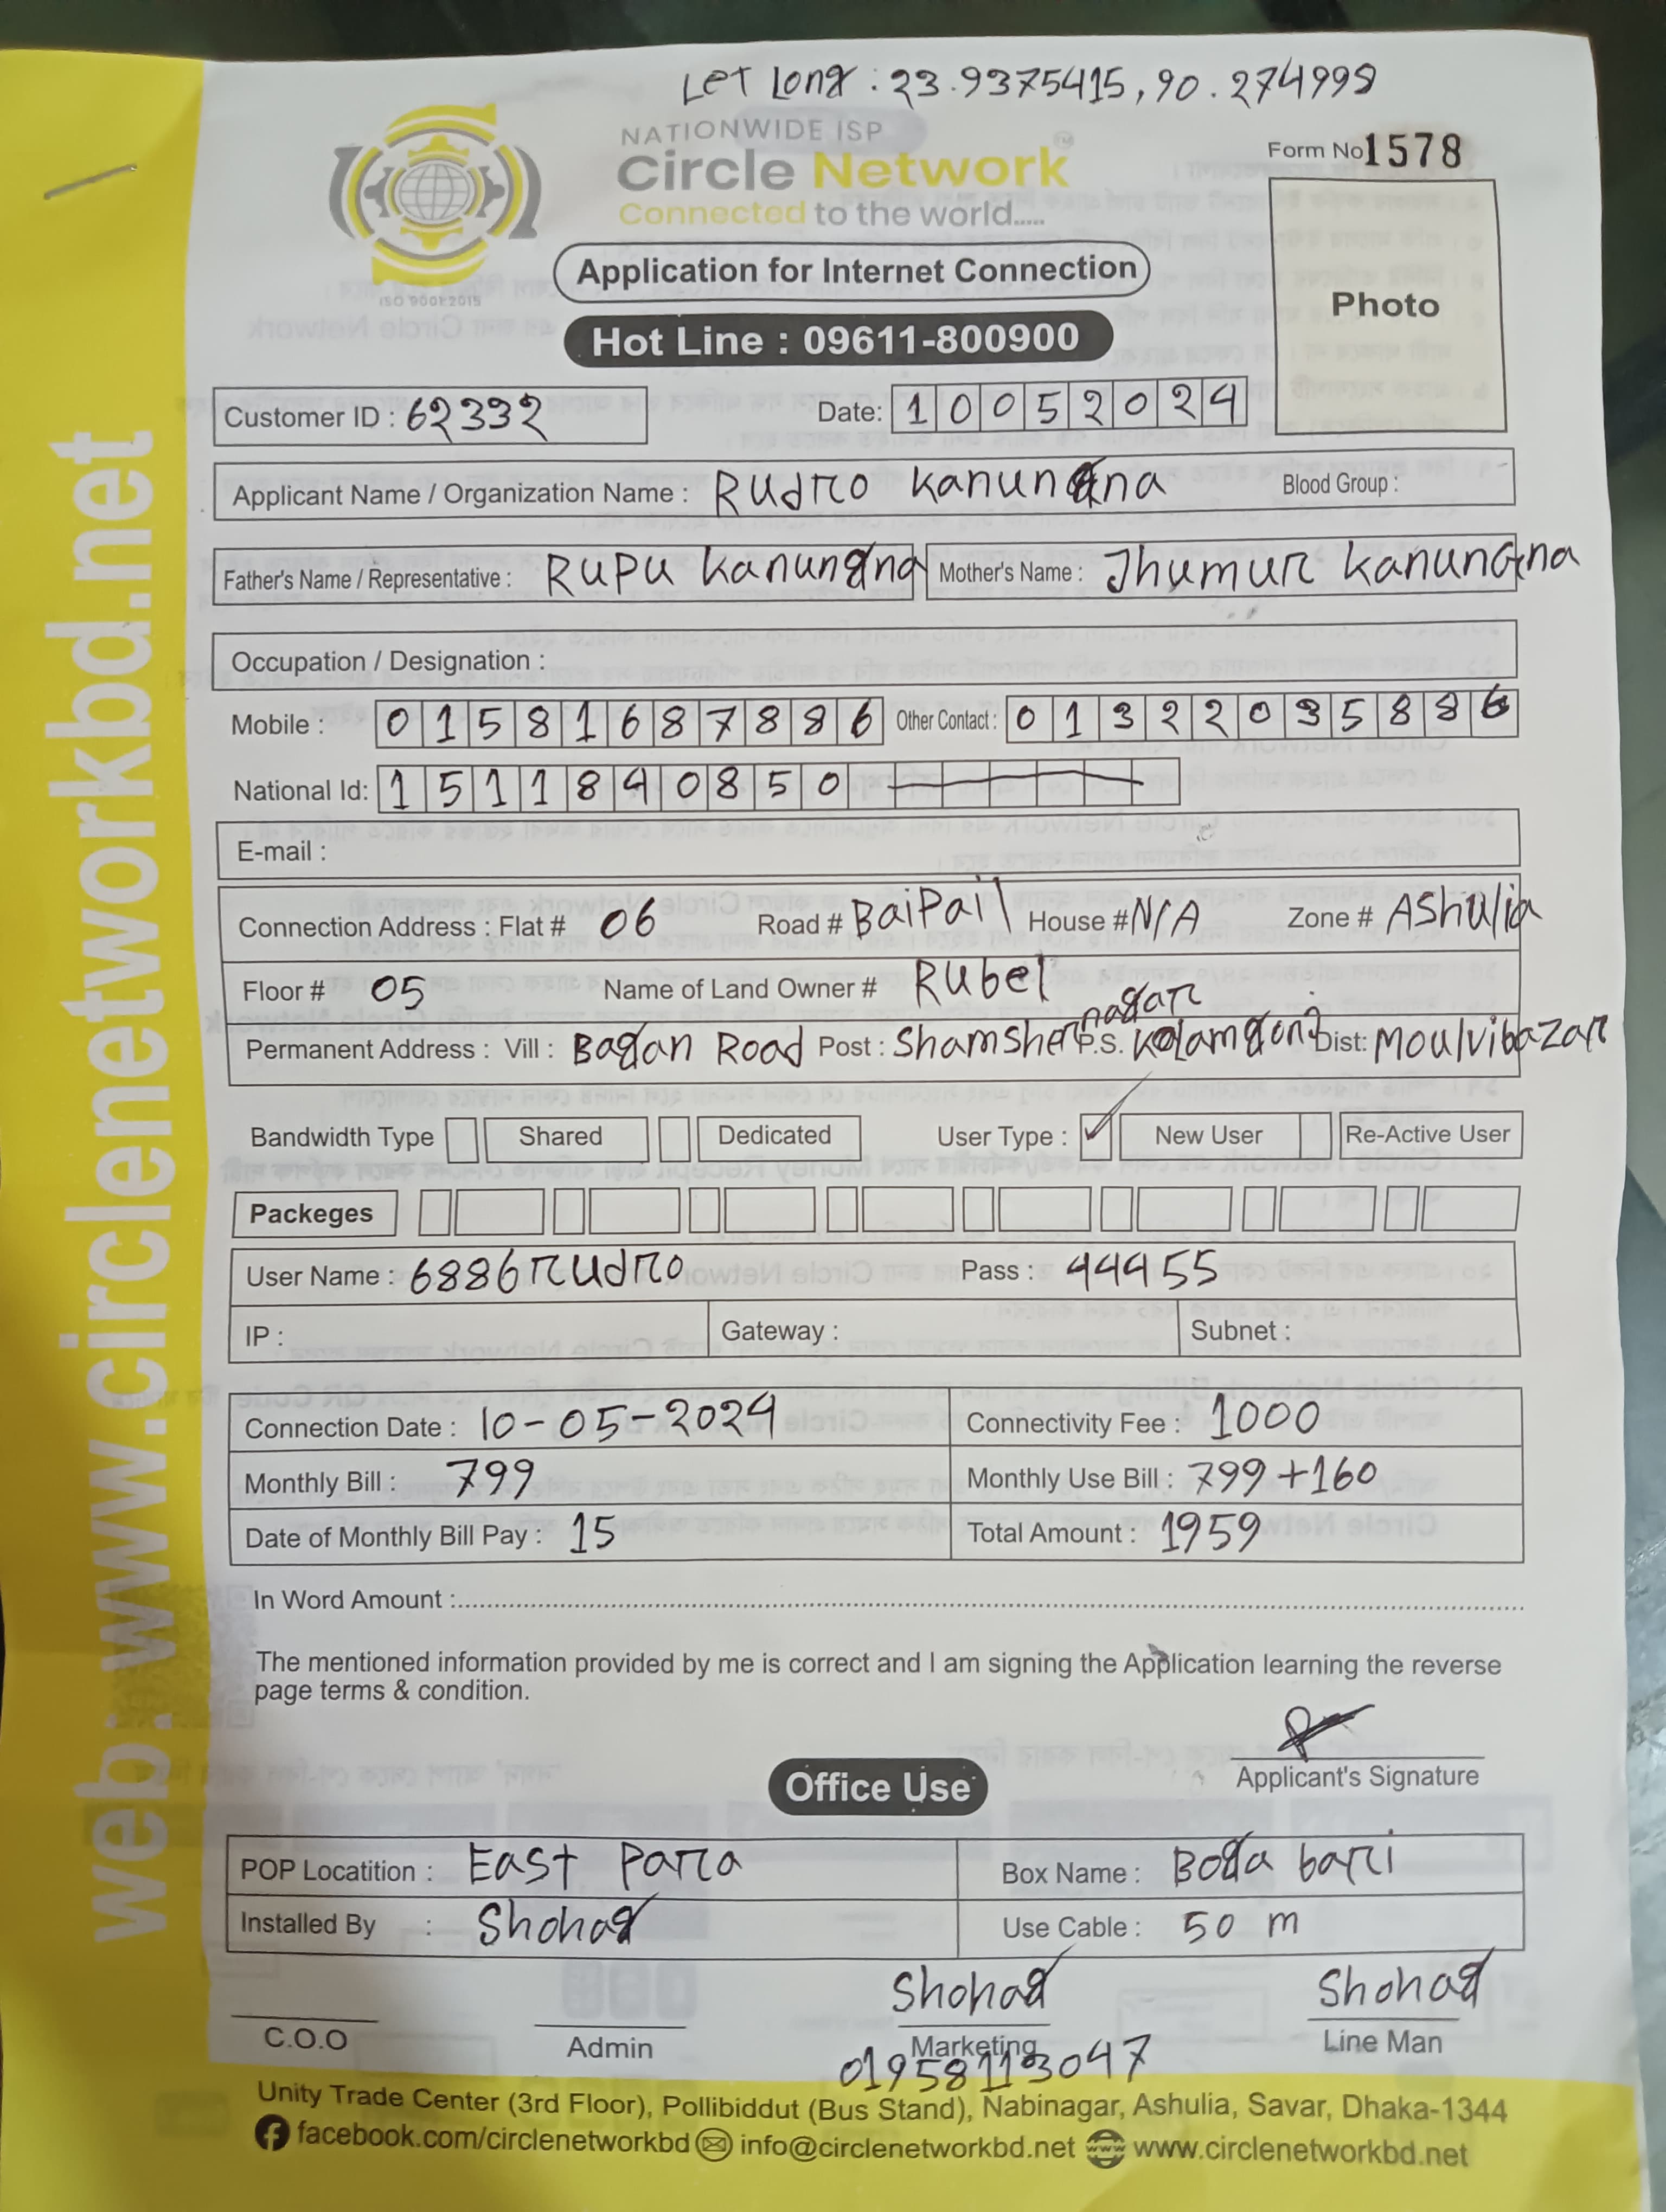 Let Long : 23.9375415, 90.274999
NATIONWIDE ISP
Circle Network™
Connected to the world.....
ISO 9001:2015
Form No 1578
Photo
Application for Internet Connection
Hot Line : 09611-800900
Customer ID : 62332 Date: 10052024
Applicant Name / Organization Name : Rudro Kanungna Blood Group :
Father's Name / Representative : Rupu Kanungna Mother's Name : Jhumur Kanungna
Occupation / Designation :
Mobile : 01581687886 Other Contact : 01322035886
National Id: 1511840850
E-mail :
Connection Address : Flat # 06 Road # BaiPail House # N/A Zone # Ashulia
Floor # 05 Name of Land Owner # Rubel
Permanent Address : Vill : Bagan Road Post : Shamshernagar P.S. Kolamgong Dist: Moulvibazar
Bandwidth Type Shared Dedicated User Type : ✓ New User Re-Active User
Packeges
User Name : 6886rudro Pass : 44455
IP : Gateway : Subnet :
Connection Date : 10-05-2024 Connectivity Fee : 1000
Monthly Bill : 799 Monthly Use Bill : 799+160
Date of Monthly Bill Pay : 15 Total Amount : 1959
In Word Amount :
The mentioned information provided by me is correct and I am signing the Application learning the reverse
page terms & condition.
Applicant's Signature
Office Use
POP Locatition : East Para Box Name : Boga bari
Installed By : Shohag Use Cable : 50 m
Shohag Shohag
C.O.O Admin Marketing Line Man
01958113047
Unity Trade Center (3rd Floor), Pollibiddut (Bus Stand), Nabinagar, Ashulia, Savar, Dhaka-1344
facebook.com/circlenetworkbd info@circlenetworkbd.net www.circlenetworkbd.net
web: www.circlenetworkbd.net